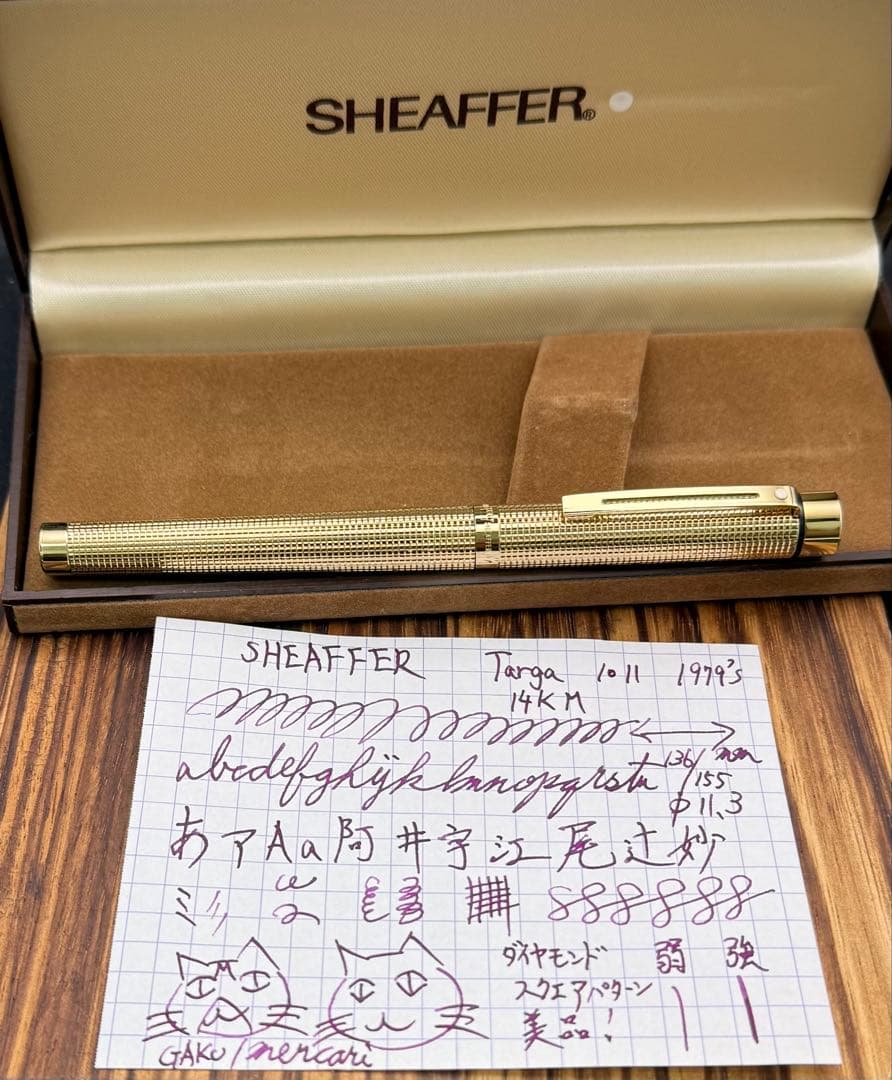 SHEAFFER®
SHEAFFER Targa 1011 1979's
14K M
abcdefghijklmnopqrstu 136/ mm
155
φ11.3
あアAa阿井宇江尾辻妙
ダイヤモンド 弱 強
スクエアパターン
美品!
GAKU/mercari